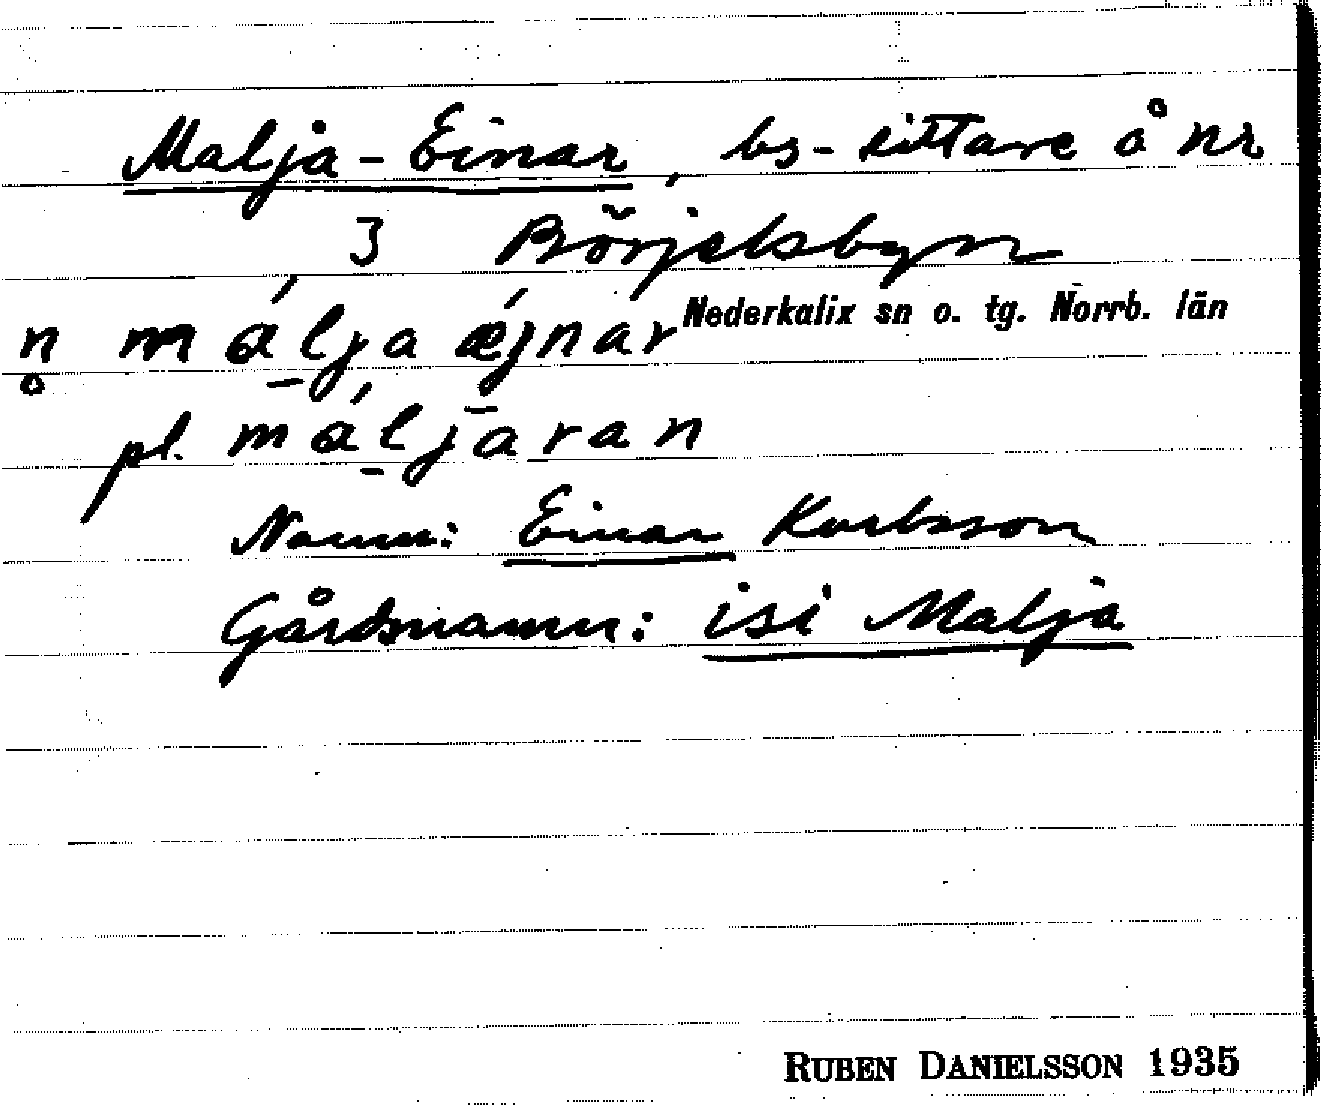 Malja-Einar, bs-sittare å nr
3 Börjelsbyn
Nederkalix sn o. tg. Norrb. län
n̥ málja ǽjnar
pl. máljaran
Namn: Einar Karlsson
Gårdsnamn: isi Malja
RUBEN DANIELSSON 1935